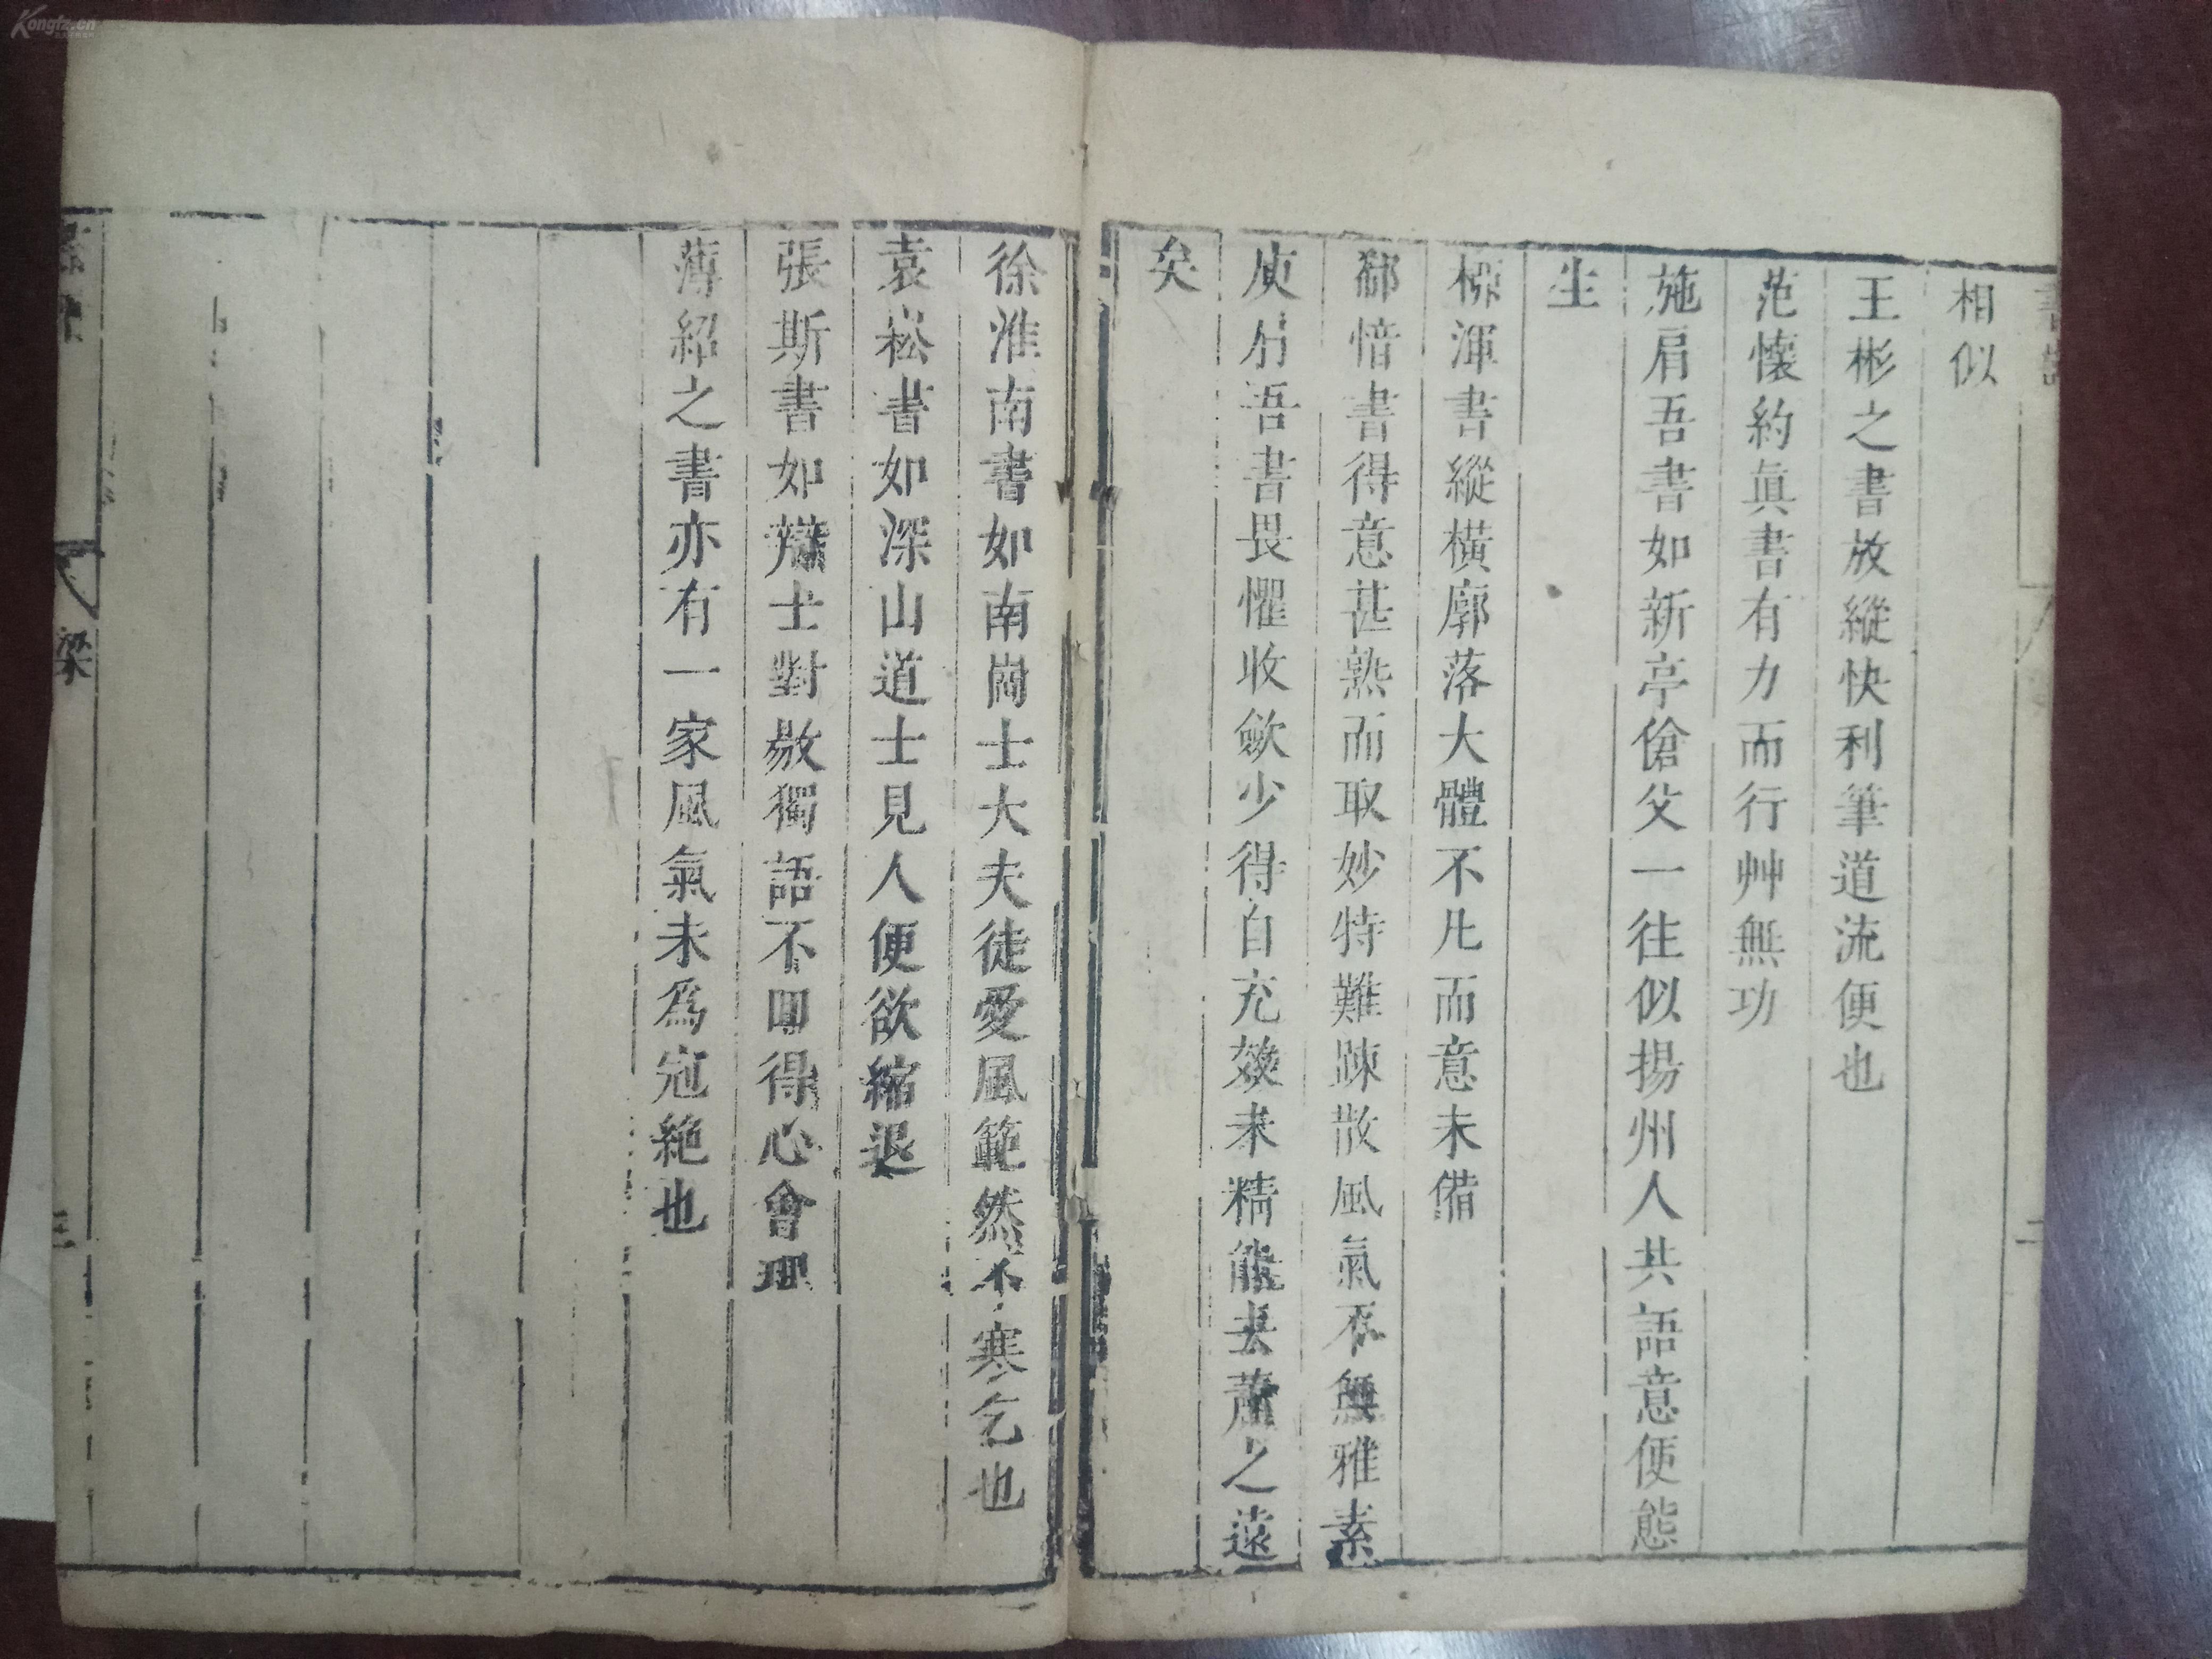 相似
王彬之書放縱快利筆道流便也
范懷約眞書有力而行艸無功
施肩吾書如新亭傖父一往似揚州人共語意便態
生
柳渾書縱橫廓落大體不凡而意未備
郗愔書得意甚熟而取妙特難踈散風氣不無雅素
庾肩吾書畏懼收斂少得自充𤼵未精能去蕭之遠
矣
徐淮南書如南崗士大夫徒愛風範然不寒乞也
袁崧書如深山道士見人便欲縮退
張斯書如辯士對敵獨語不囬得心會理
薄紹之書亦有一家風氣未爲冠絶也
梁
三
Kongfz.cn